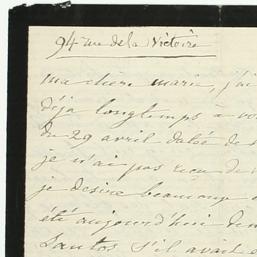 94 rue de la Victoire
ma chère marie, j'ai
déjà longtemps à vo
du 29 avril datée de
je n'ai pas reçu de
je desire beaucoup
été aujourd'hui
Santos s'il avait